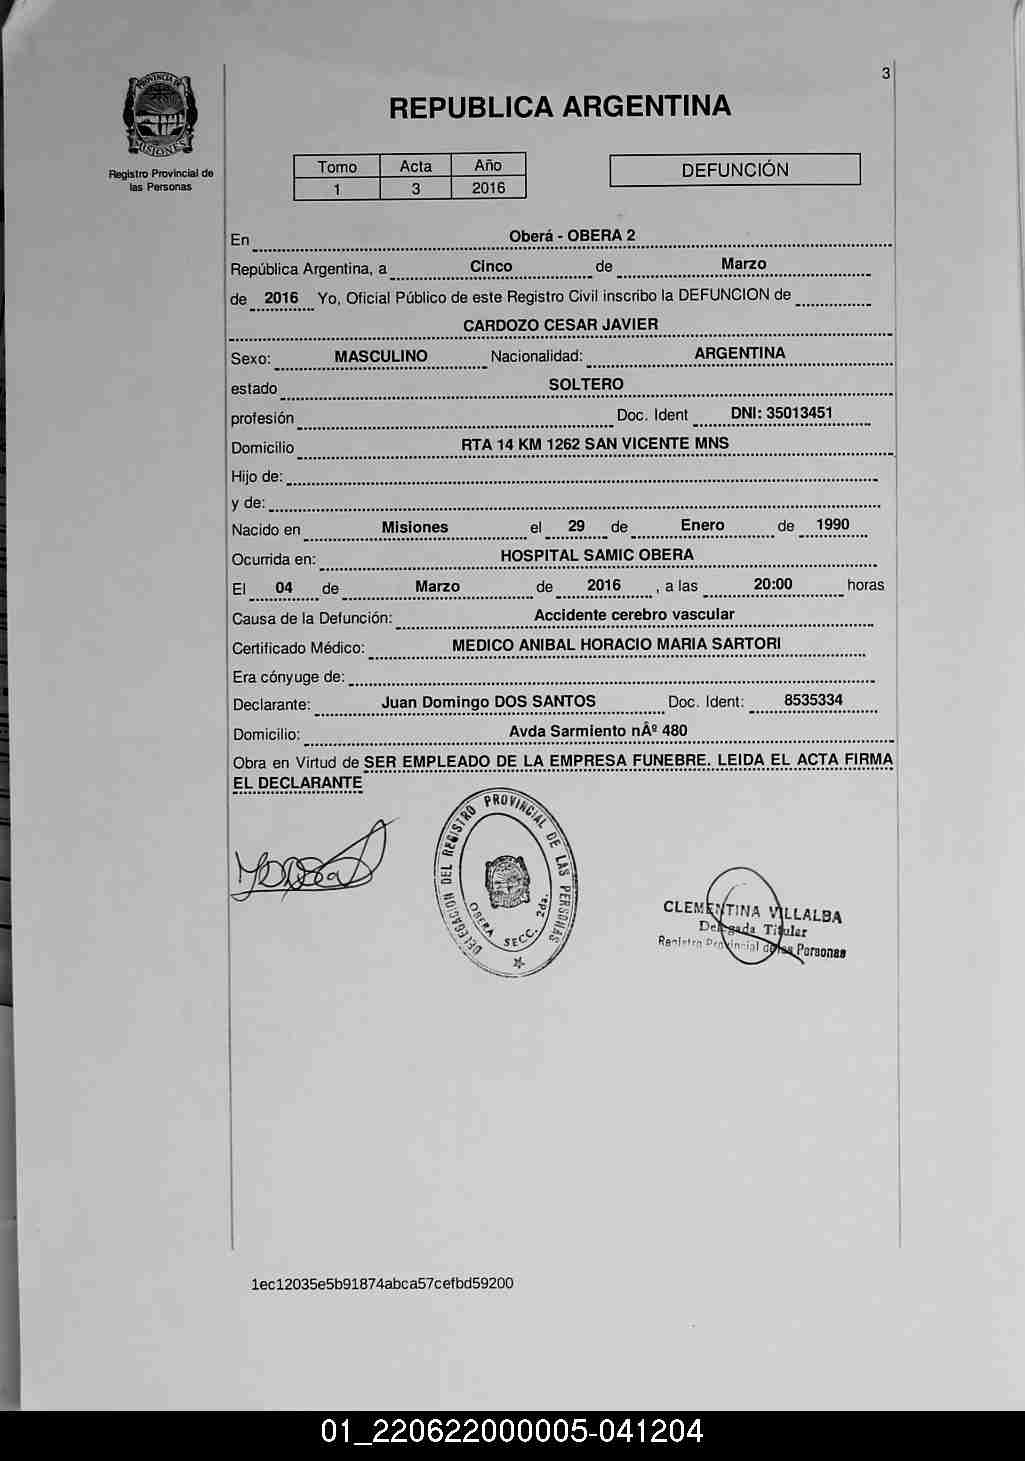 3
PROVINCIA DE
MISIONES
Registro Provincial de
las Personas
REPUBLICA ARGENTINA
Tomo Acta Año
1 3 2016
DEFUNCIÓN
En Oberá - OBERA 2
República Argentina, a Cinco de Marzo
de 2016 Yo, Oficial Público de este Registro Civil inscribo la DEFUNCION de
CARDOZO CESAR JAVIER
Sexo: MASCULINO Nacionalidad: ARGENTINA
estado SOLTERO
profesión Doc. Ident DNI: 35013451
Domicilio RTA 14 KM 1262 SAN VICENTE MNS
Hijo de:
y de:
Nacido en Misiones el 29 de Enero de 1990
Ocurrida en: HOSPITAL SAMIC OBERA
El 04 de Marzo de 2016 , a las 20:00 horas
Causa de la Defunción: Accidente cerebro vascular
Certificado Médico: MEDICO ANIBAL HORACIO MARIA SARTORI
Era cónyuge de:
Declarante: Juan Domingo DOS SANTOS Doc. Ident: 8535334
Domicilio: Avda Sarmiento nÂº 480
Obra en Virtud de SER EMPLEADO DE LA EMPRESA FUNEBRE. LEIDA EL ACTA FIRMA
EL DECLARANTE
DELEGACION DEL REGISTRO PROVINCIAL DE LAS PERSONAS
OBERA SECC. 2da.
CLEMENTINA VILLALBA
Delegada Titular
Registro Provincial de las Personas
1ec12035e5b91874abca57cefbd59200
01_220622000005-041204